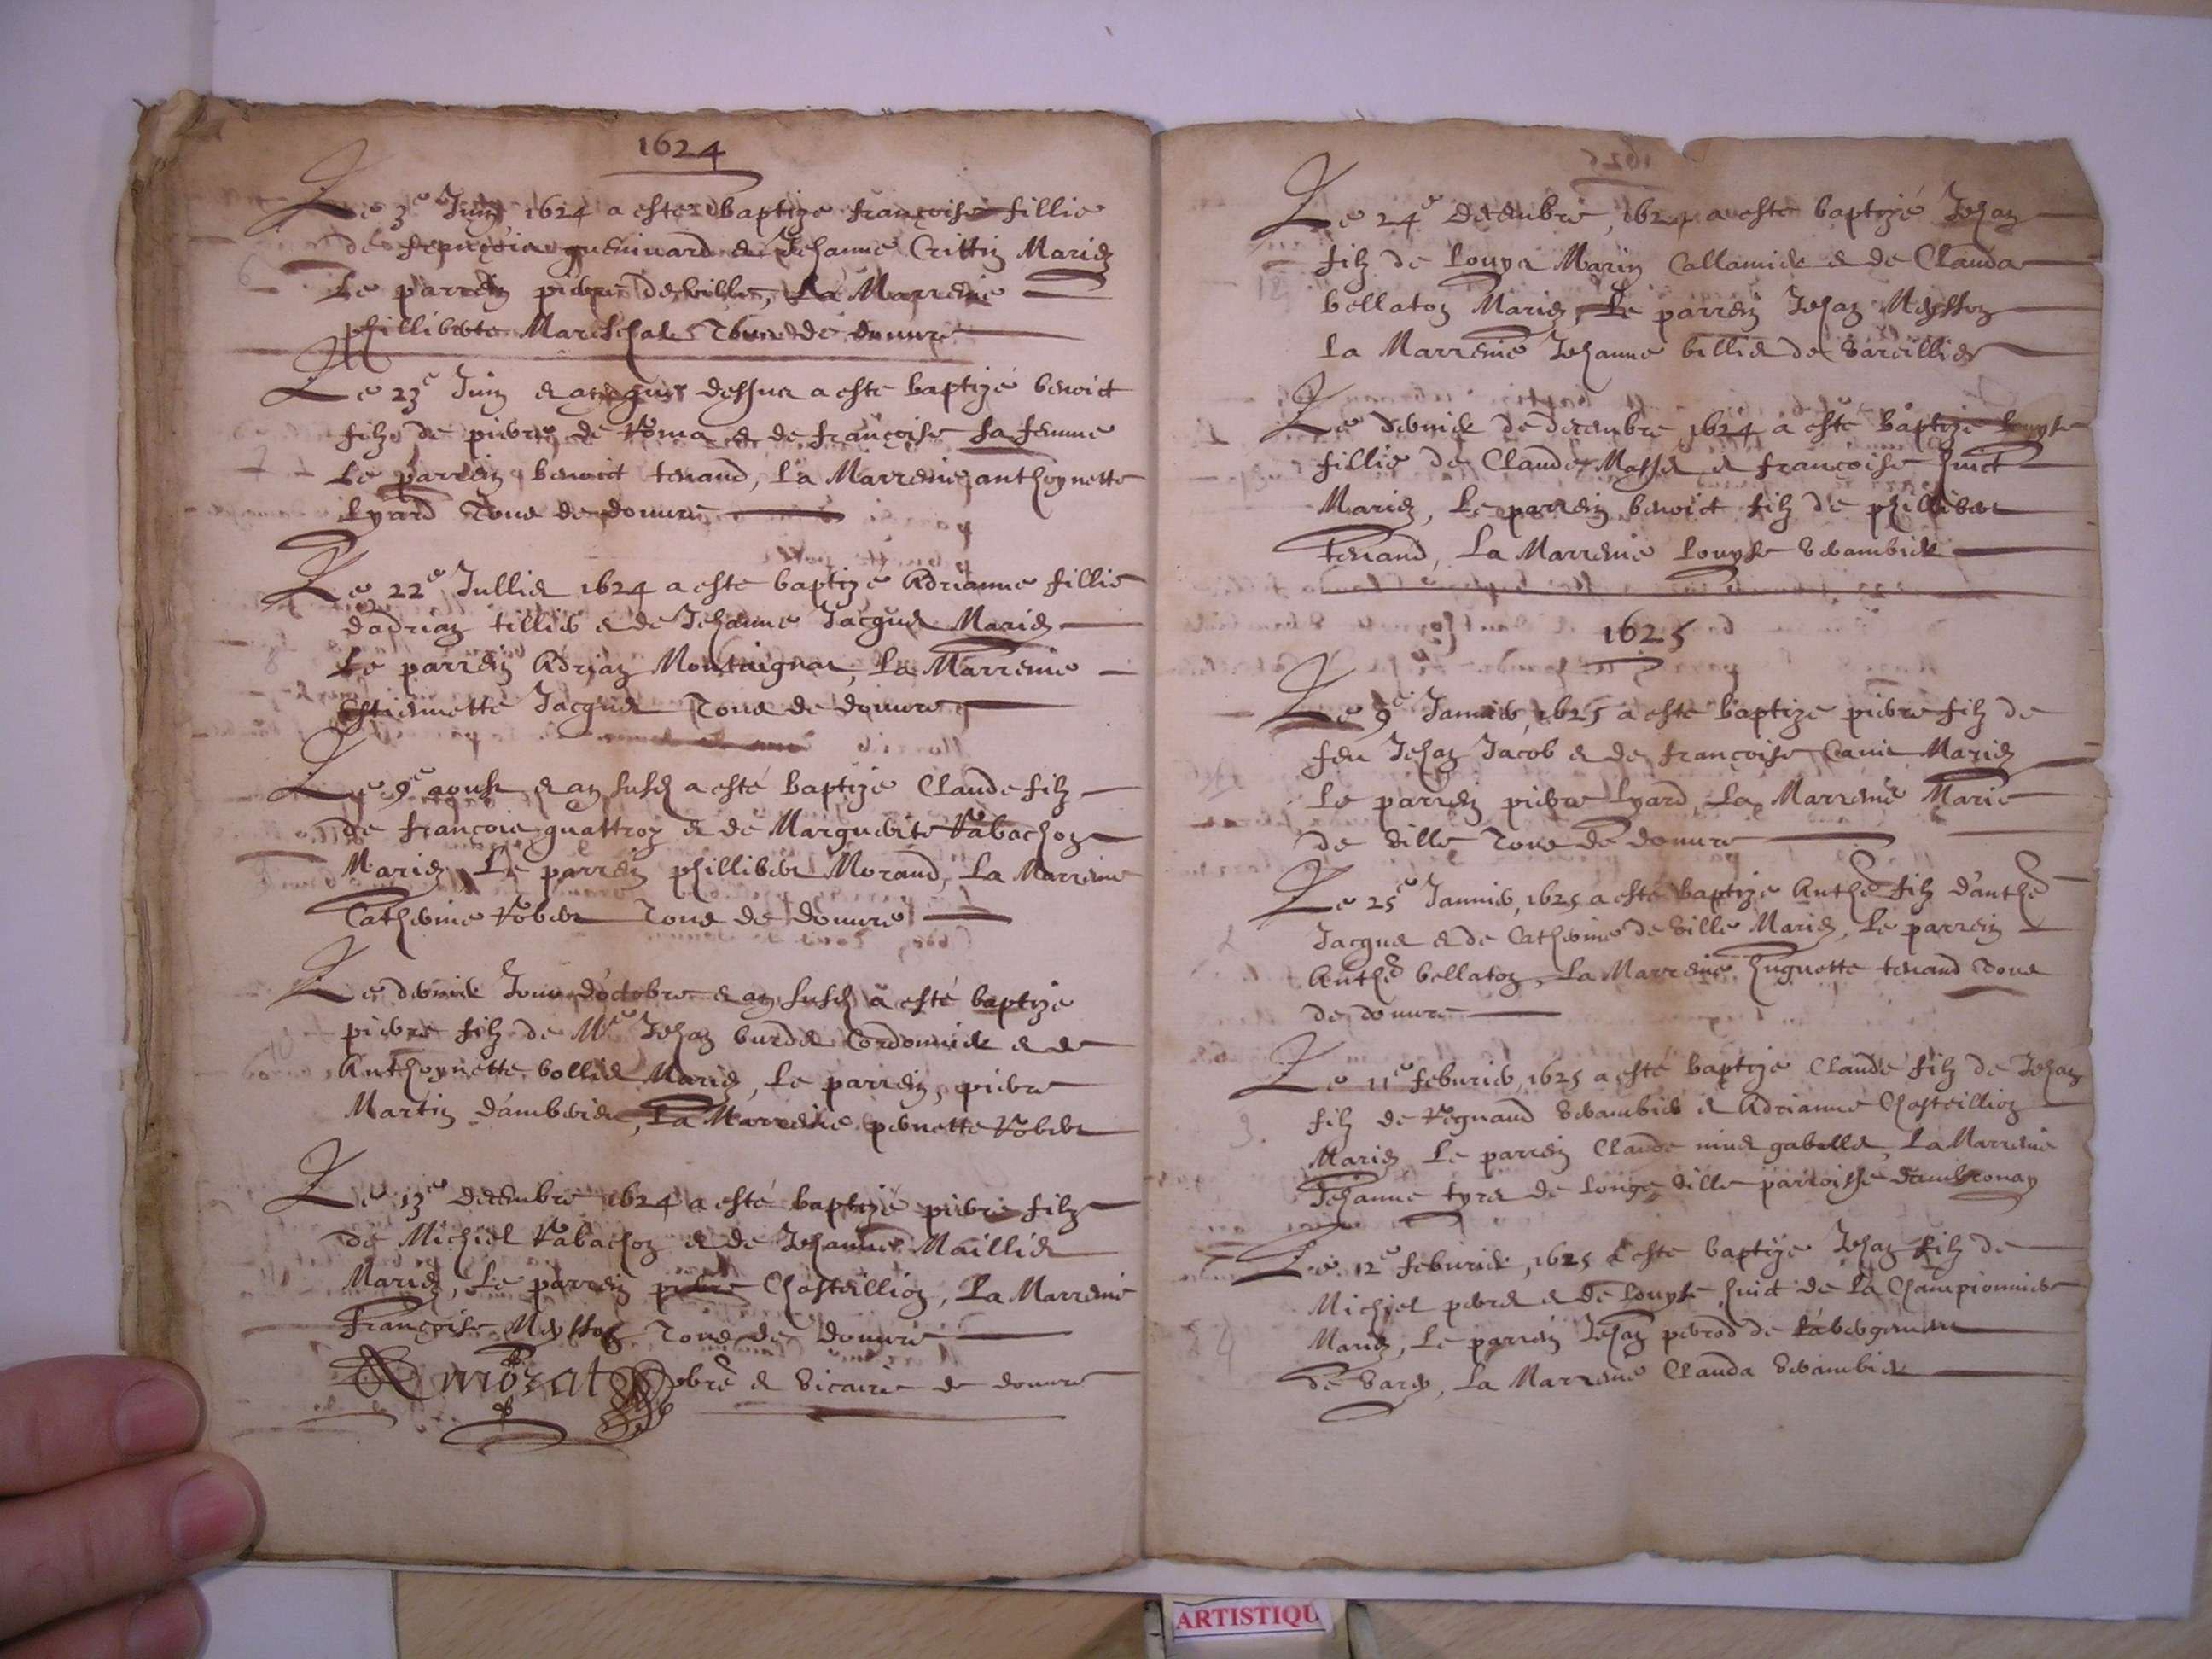 1624
Le 3e Juin 1624 a esté baptizé françoise fillie
de françois guenivard et Jehanne Crittin Mariez
Le parrein pierre deville, La Marreine
philliberte Mareschal Tous de douvre
Le 23e Juin et an que dessus a esté baptizé benoict
filz de pierre de Roma et de françoise sa femme
Le parrein benoict tenand, La Marreine anthoynette
Lyard Tous de douvre
Le 22e Jullet 1624 a esté baptizé Adrianne fillie
dadrian tillier et de Jehanne Jacques Mariez
Le parrein Adrian Montaignat, La Marreine
Estiennette Jacques Tous de douvre
Le 9e aoust et an susd a esté baptizé Claude filz
de françois quattroz et de Marguerite Rabachoz
Mariez Le parrein phillibert Morand, La Marreine
Catherine Robert Tous de douvre
Le dernier Jour d'octobre et an susd a esté baptizé
pierre filz de Me Jehan burdet Cordonnier et de
Anthoynette bolliet Mariez, Le parrein, pierre
Martin d'amberieu, La Marreine pernette Robert
Le 13e decembre 1624 a esté baptizé pierre filz
de Michiel Rabachoz et de Jehanne Mailliet
Mariez, Le parrein pierre Chasteillion, La Marreine
Françoise Meysson Tous de douvre
Amozat pbre et vicaire de douvre
Le 24e decembre, 1624 a esté baptizé Jehan
filz de Louys Marin Callamier et de Clauda
bellaton Mariez, Le parrein Jehan Meysson
La Marreine Jehanne billiet de Vareilles
Le dernier de decembre 1624 a esté baptizé Louyse
fillie de Claude Masse et françoise huict
Mariez, Le parrein benoict filz de phillibert
tenand, La Marreine Louyse Verambier
1625
Le 9e Janvier 1625 a esté baptizé pierre filz de
feu Jehan Jacob et de françoise Mariez
Le parrein pierre Lyard La Marreine Marie
de Ville Tous de douvre
Le 25e Janvier, 1625 a esté baptizé Anthe filz d'anthe
Jacques et de Catherine de Ville Mariez, Le parrein
Anthe bellaton, La Marreine huguette tenand Tous
de douvre
Le 11e febvrier, 1625 a esté baptizé Claude filz de Jehan
filz de Regnaud Verambier et Adrianne Chasteillion
Mariez Le parrein Claude gabillet, La Marreine
Jehanne tyret de Longe Ville parroisse d'ambronay
Le 12e febvrier, 1625 a esté baptizé Jehan filz de
Michiel peret et de Louyse huict de la Championniere
Mariez, Le parrein Jehan perrod de
de Varey, La Marreine Clauda Verambier
ARTISTIQU